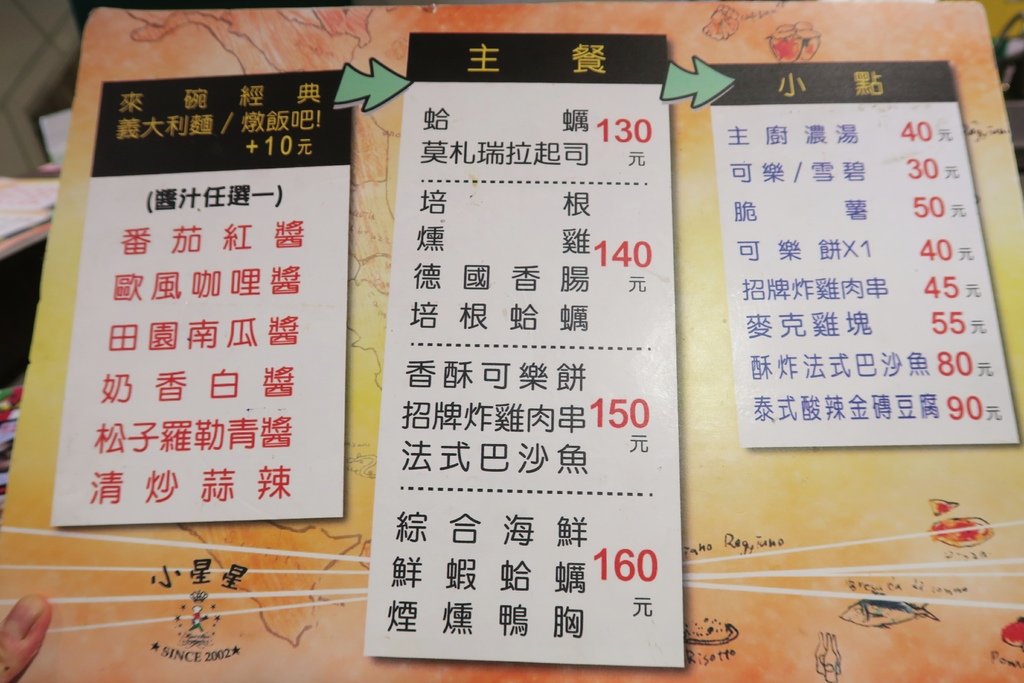 來碗經典
義大利麵/燉飯吧!
+10元
(醬汁任選一)
番茄紅醬
歐風咖哩醬
田園南瓜醬
奶香白醬
松子羅勒青醬
清炒蒜辣
小星星
★SINCE 2002★
主餐
蛤蠣
莫札瑞拉起司
130元
培根
燻雞
德國香腸
培根蛤蠣
140元
香酥可樂餅
招牌炸雞肉串
法式巴沙魚
150元
綜合海鮮
鮮蝦蛤蠣
煙燻鴨胸
160元
小點
主廚濃湯 40元
可樂/雪碧 30元
脆薯 50元
可樂餅X1 40元
招牌炸雞肉串 45元
麥克雞塊 55元
酥炸法式巴沙魚 80元
泰式酸辣金磚豆腐 90元
Risotto